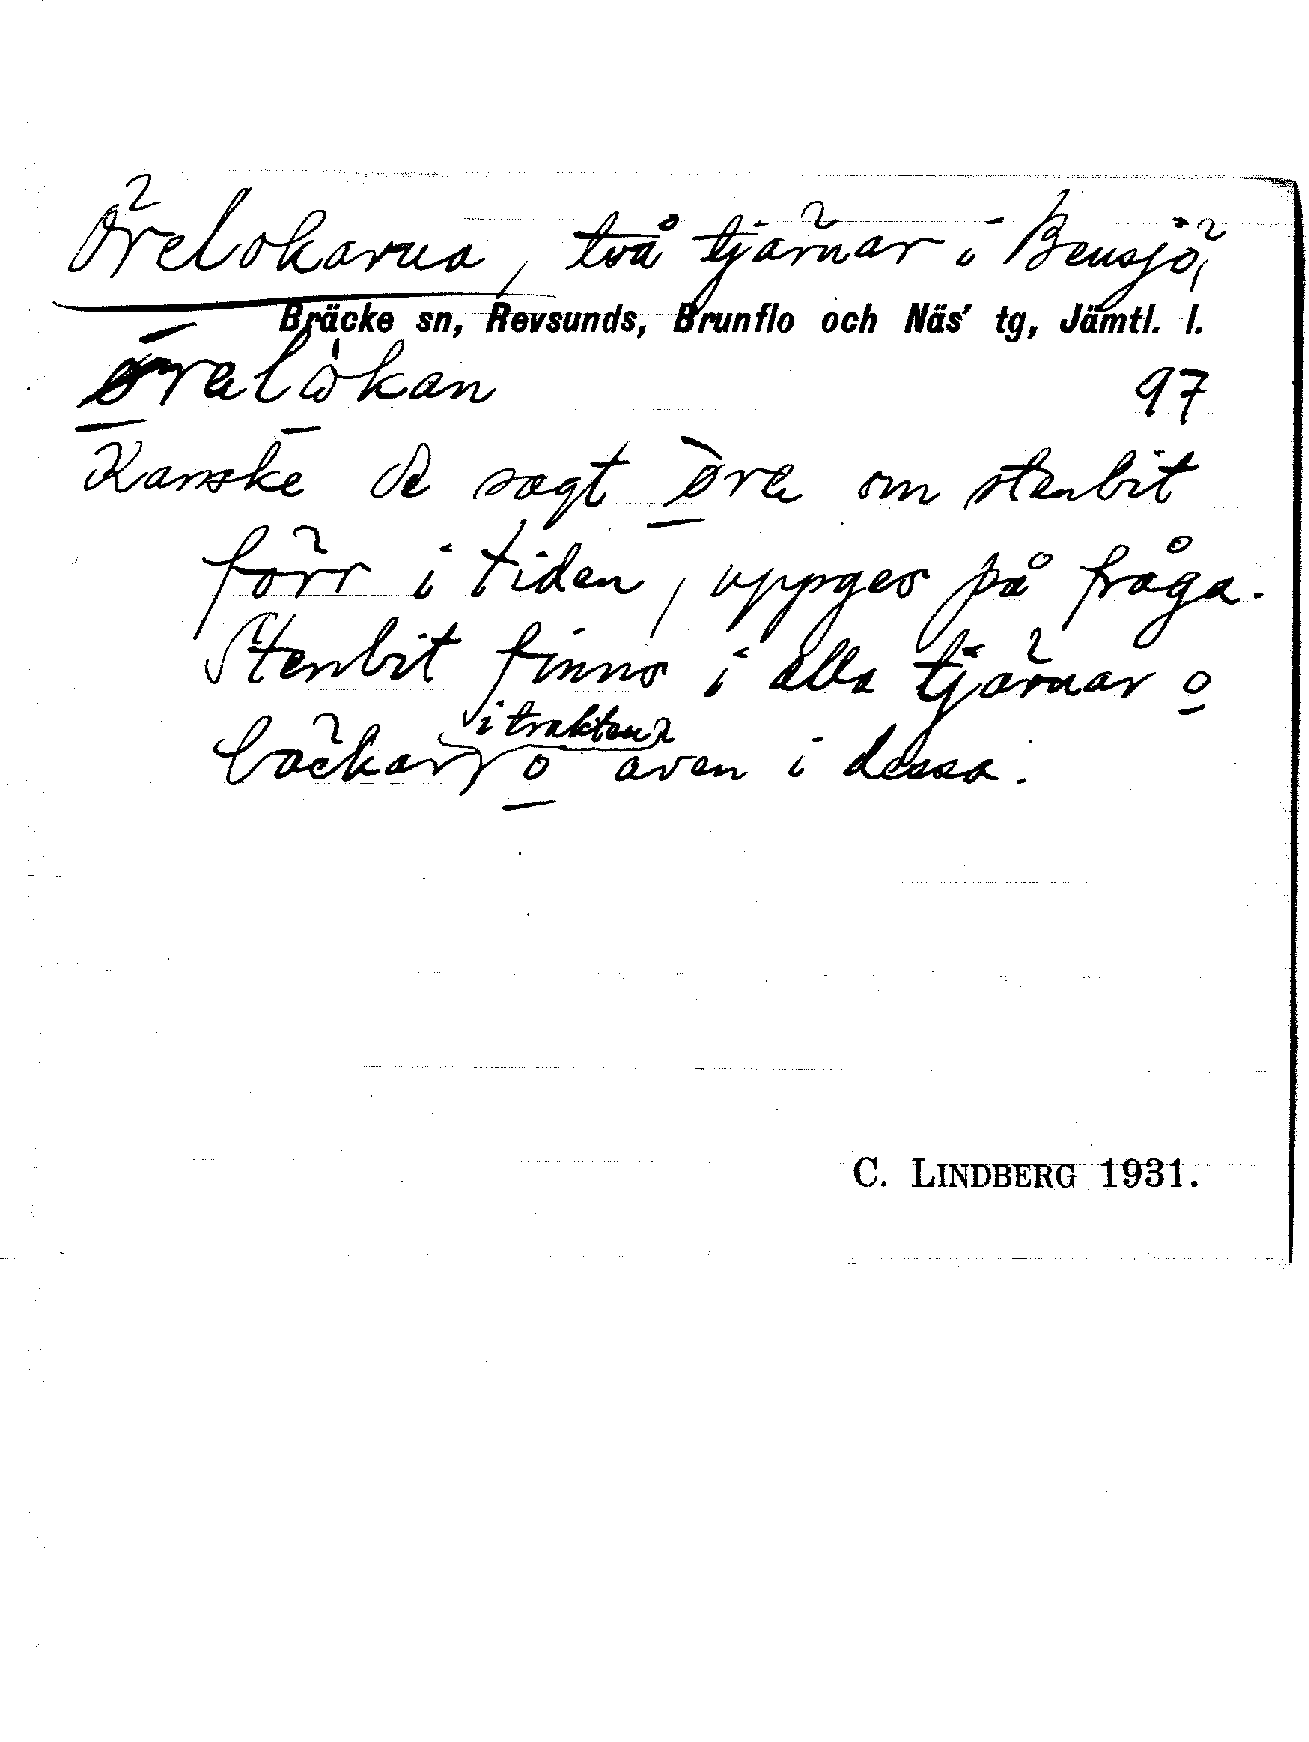 Örelokarna, två tjärnar i Bensjö,
Bräcke sn, Revsunds, Brunflo och Näs' tg, Jämtl. l.
øralὼkan
97
Kanske de sagt øra om stenbit
förr i tiden, uppges på fråga.
Stenbit finns i alla tjärnar o
i trakten
bäckar o även i dessa.
C. LINDBERG 1931.